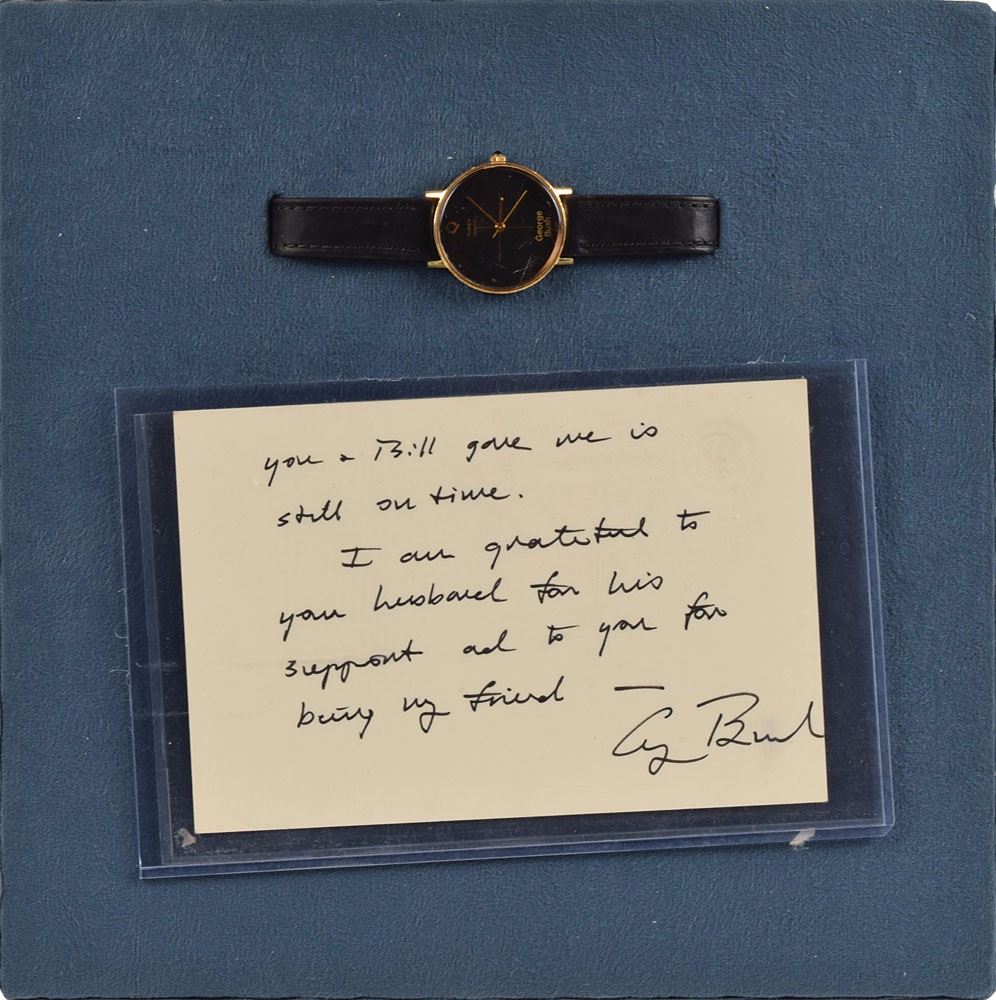 George
Bush
you & Bill gave me is
still on time.
I am grateful to
your husband for his
support and to you for
being my friend —
Bush